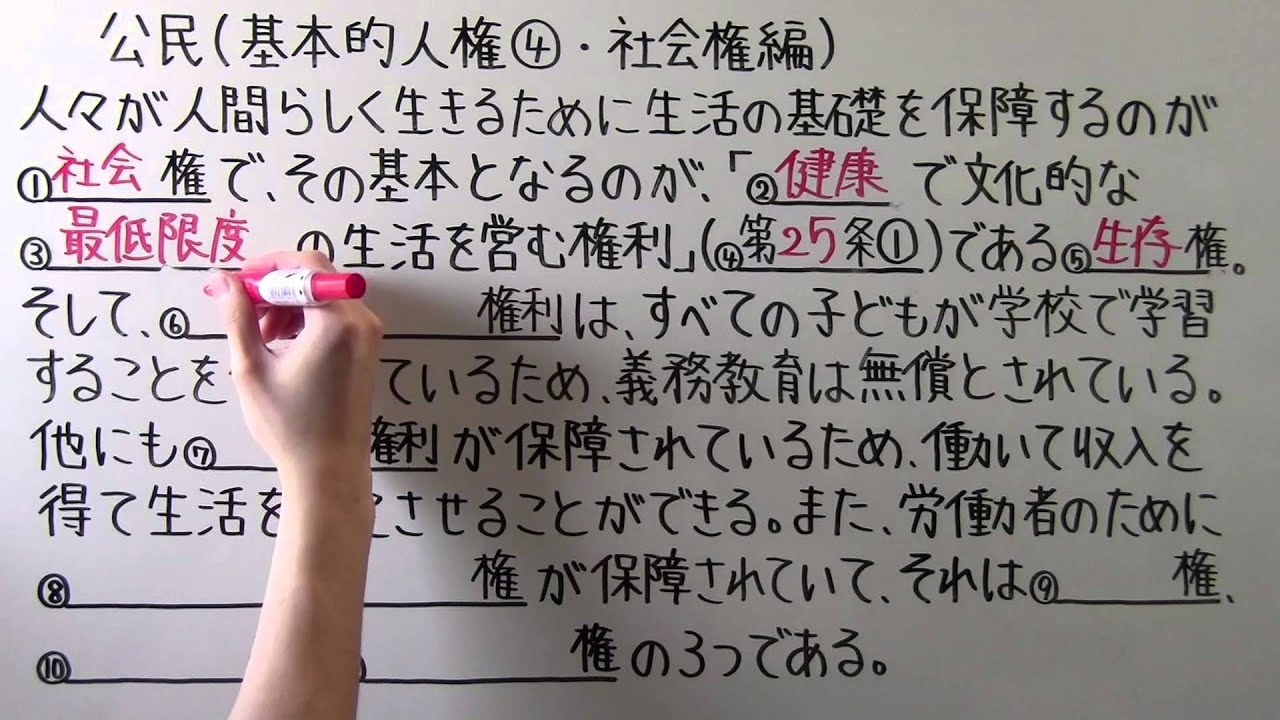 公民(基本的人権④・社会権編)
人々が人間らしく生きるために生活の基礎を保障するのが
①社会権で、その基本となるのが、「②健康で文化的な
③最低限度の生活を営む権利」(④第25条①)である⑤生存権。
そして、⑥権利は、すべての子どもが学校で学習
することを ているため、義務教育は無償とされている。
他にも⑦権利が保障されているため、働いて収入を
得て生活を させることができる。また、労働者のために
⑧権が保障されていて、それは⑨権、
⑩権の3つである。